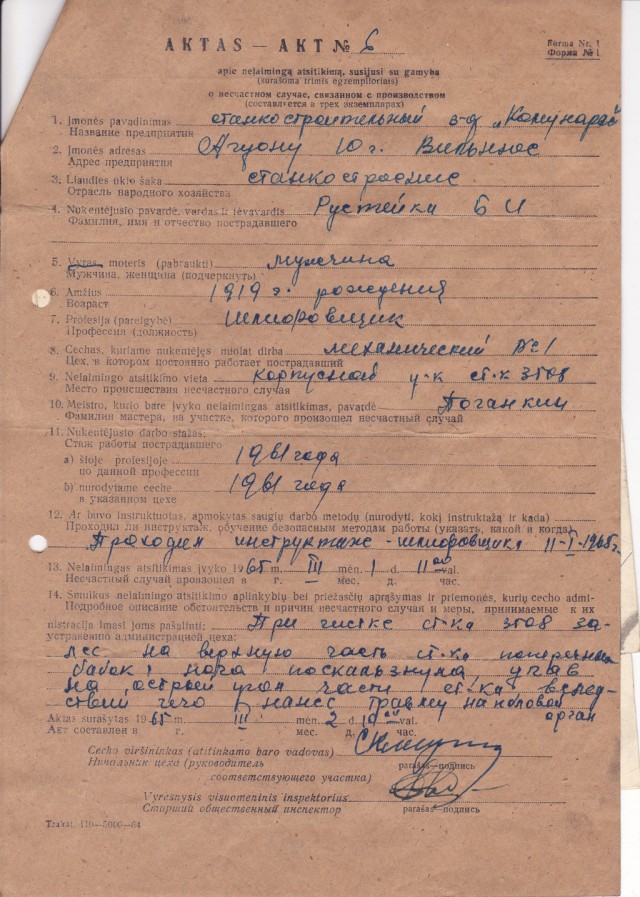 AKTAS — AKT № 6
Forma Nr. 1
Форма № 1
apie nelaimingą atsitikimą, susijusi su gamyba
(surašoma trimis egzemplioriais)
о несчастном случае, связанном с производством
(составляется в трех экземплярах)
1. Įmonės pavadinimas станкостроительный з-д „Комунарас"
Название предприятия
2. Įmonės adresas 10 г. Вильнюс
Адрес предприятия
3. Liaudies ūkio šaka станкостроение
Отрасль народного хозяйства
4. Nukentėjusio pavardė, vardas ir tėvavardis Рустейка Б И
Фамилия, имя и отчество пострадавшего
5. Vyras, moteris (pabraukti) мужчина
Мужчина, женщина (подчеркнуть)
6. Amžius 1919 г. рождения
Возраст
7. Profesija (pareigybė) шлифовщик
Профессия (должность)
8. Cechas, kuriame nukentėjęs nuolat dirba механический №1
Цех, в котором постоянно работает пострадавший
9. Nelaimingo atsitikimo vieta корпусной у-к ст-к 3Т08
Место происшествия несчастного случая
10. Meistro, kurio bare įvyko nelaimingas atsitikimas, pavardė Поганкин
Фамилия мастера, на участке, которого произошел несчастный случай
11. Nukentėjusio darbo stažas:
Стаж работы пострадавшего
a) šioje profesijoje 1961 года
по данной профессии
b) nurodytame ceche 1961 года
в указанном цехе
12. Ar buvo instruktuotas, apmokytas saugių darbo metodų (nurodyti, kokį instruktažą ir kada)
Проходил ли инструктаж, обучение безопасным методам работы (указать, какой и когда)
Проходил инструктаж - шлифовщика 11-I-1965г.
13. Nelaimingas atsitikimas įvyko 1965 m. III mėn. 1 d. 11 00 val.
Несчастный случай произошел в г. мес. д. час.
14. Smulkus nelaimingo atsitikimo aplinkybių bei priežasčių aprašymas ir priemonės, kurių cecho admi-
Подробное описание обстоятельств и причин несчастного случая и меры, принимаемые к их
nistracija ėmėsi joms pašalinti: При чистке ст-ка 3Т08 за-
устранению администрацией цеха:
лес на верхнюю часть ст-ка поперечных
бабок, нога поскальзнула, упав
на острый угол части ст-ка, вслед-
ствий чего нанес травму на половой
орган
Aktas surašytas 1965 m. III mėn. 2 d. 10 val.
Акт составлен в г. мес. д. час.
Cecho viršininkas (atitinkamo baro vadovas)
Начальник цеха (руководитель parašas—подпись
соответствующего участка)
Vyresnysis visuomeninis inspektorius
Старший общественный инспектор parašas—подпись
Trakai. 110—5000—64